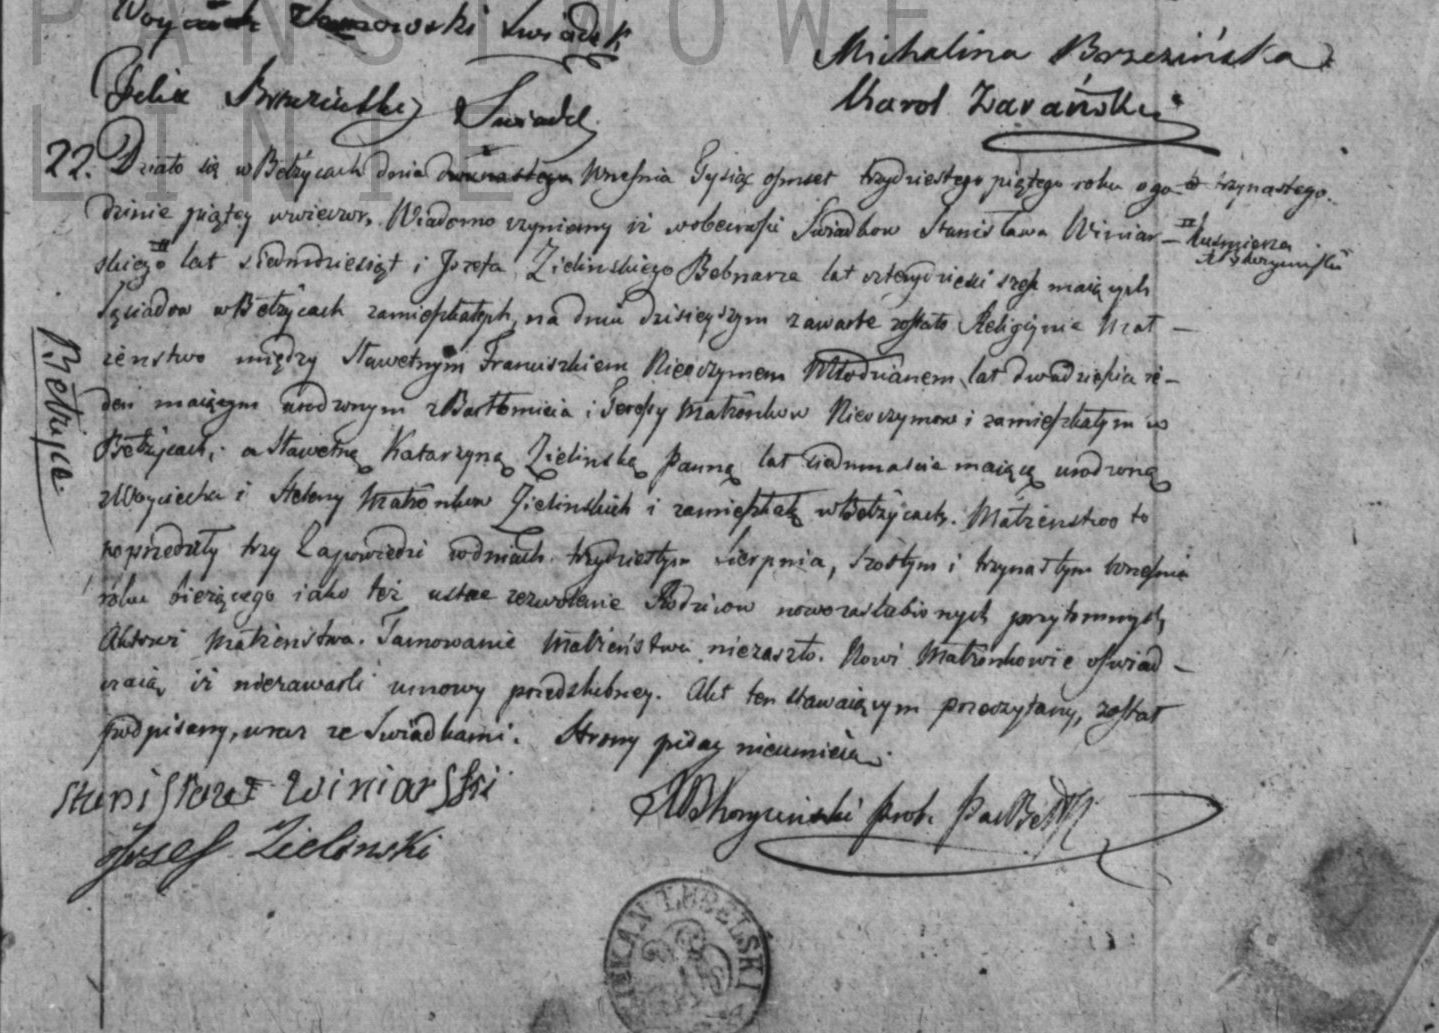 PAŃSTWOWE
Woyciech Zamorowski Swiadek
Michalina Brzezińska
Felix Brzezinski Swiadek
Karol Zarański
LINIE
22. Działo się w Bełżycach dnia dwunastego Wrzesnia Tysiąc osmset trzydziestego piątego roku o go- trzynastego.
dzinie piątey wwieczor. Wiadomo czyniemy iż w obecnosci Swiadkow Stanisława Winiar-
II Kusmierza
skiego II lat siedmdziesiąt i Jozefa Zielinskiego Bednarza lat czterdziesci szesc maiących
Sąsiadow w Bełżycach zamieszkałych, na dniu dzisieyszym zawarte zostało Religiynie Mał-
zenstwo między Sławetnym Franciszkiem Nieoczymem Młodzianem, lat dwadziescia ie-
den maiącym urodzonym z Bartłomieia i Teressy Małżonkow Nieoczymow i zamieszkałym w
Bełżycach; a Sławetną Katarzyną Zielinską Panną lat siedmnascie maiącą urodzoną
z Woyciecha i Heleny Małżonkow Zielinskich i zamieszkałą w Bełżycach. Małżenstwo to
poprzedziły trzy Zapowiedzi w dniach trzydziestym Sierpnia, szostym i trzynastym Wrzesnia
roku bieżącego iako też ustne zezwolenie Rodzicow nowozaslubionych przytomnych
Aktowi Małżenstwa. Tamowanie Małżeństwa niezaszło. Nowi Małżonkowie oswiad-
czaią iż niezawarli umowy przedslubney. Akt ten stawaiącym przeczytany, został
podpisany, wraz ze Swiadkami. Strony pisac nieumieią.
Bełżyce.
Stanisław Winiarski
Jozef Zielinski
Skorzynski Prob. Par. Beł
DZIEKAN LUBELSKI